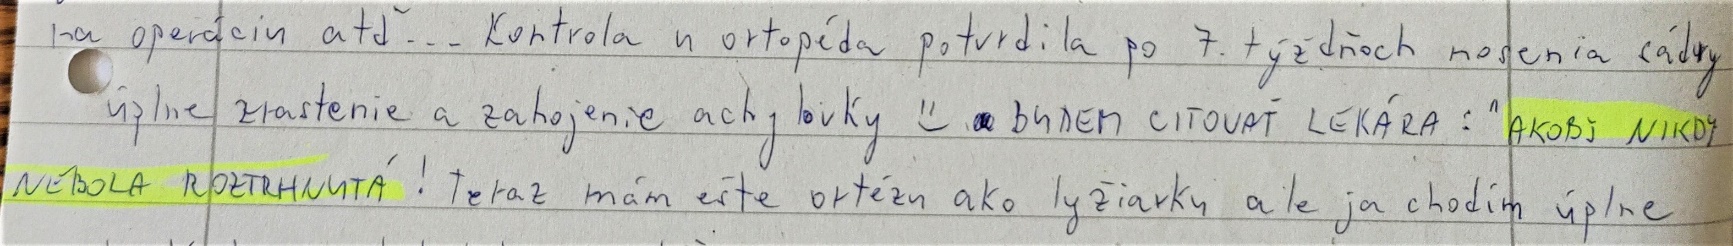 na operáciu atď... Kontrola u ortopéda potvrdila po 7. týždňoch nosenia sádry
úplne zrastenie a zahojenie achylovky !! a BUDEM CITOVAŤ LEKÁRA : "AKOBY NIKDY
NEBOLA ROZTRHNUTÁ! Teraz mám ešte ortézu ako lyžiarku ale ja chodím úplne